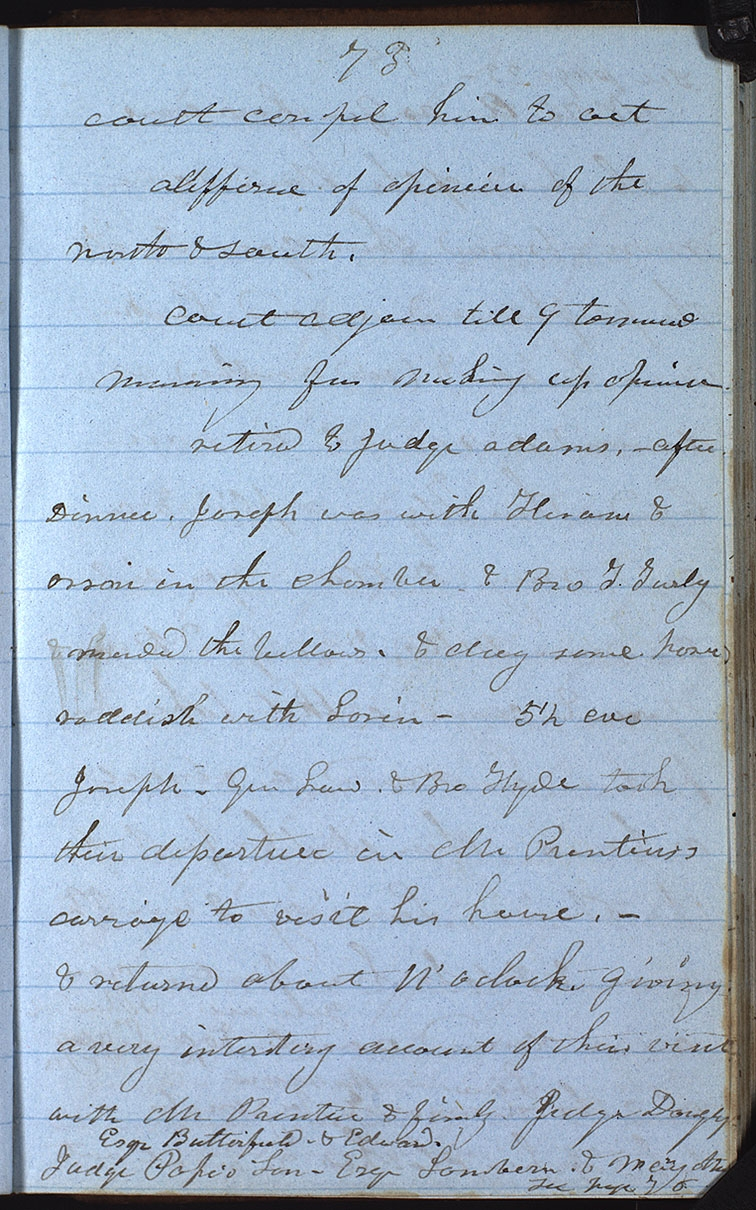 73
coutt compel him to act
differne of opinion of the
north & south.
court adjourn till 9 tomorrow
morning for making up opinion.
retired to Judge adams. - after
Dinner. Joseph was with Hiram &
orson in the chamber. & Bro T. Turly
& mended the bellows. & dug some horse
raddish with Lorin - 5 1/2 eve
Joseph - Gen Law. & Bro Hyde took
their departure in Mr Prentiss
carriage to visit his house. -
& returned about 11 oclock giving
a very interesting account of their visit
with Mr Prentice & family. Judge Douglass.
Esqr Butterfield. & Edward.
Judge Pope's Son - Esqr Lamborn. & many others
see page 76